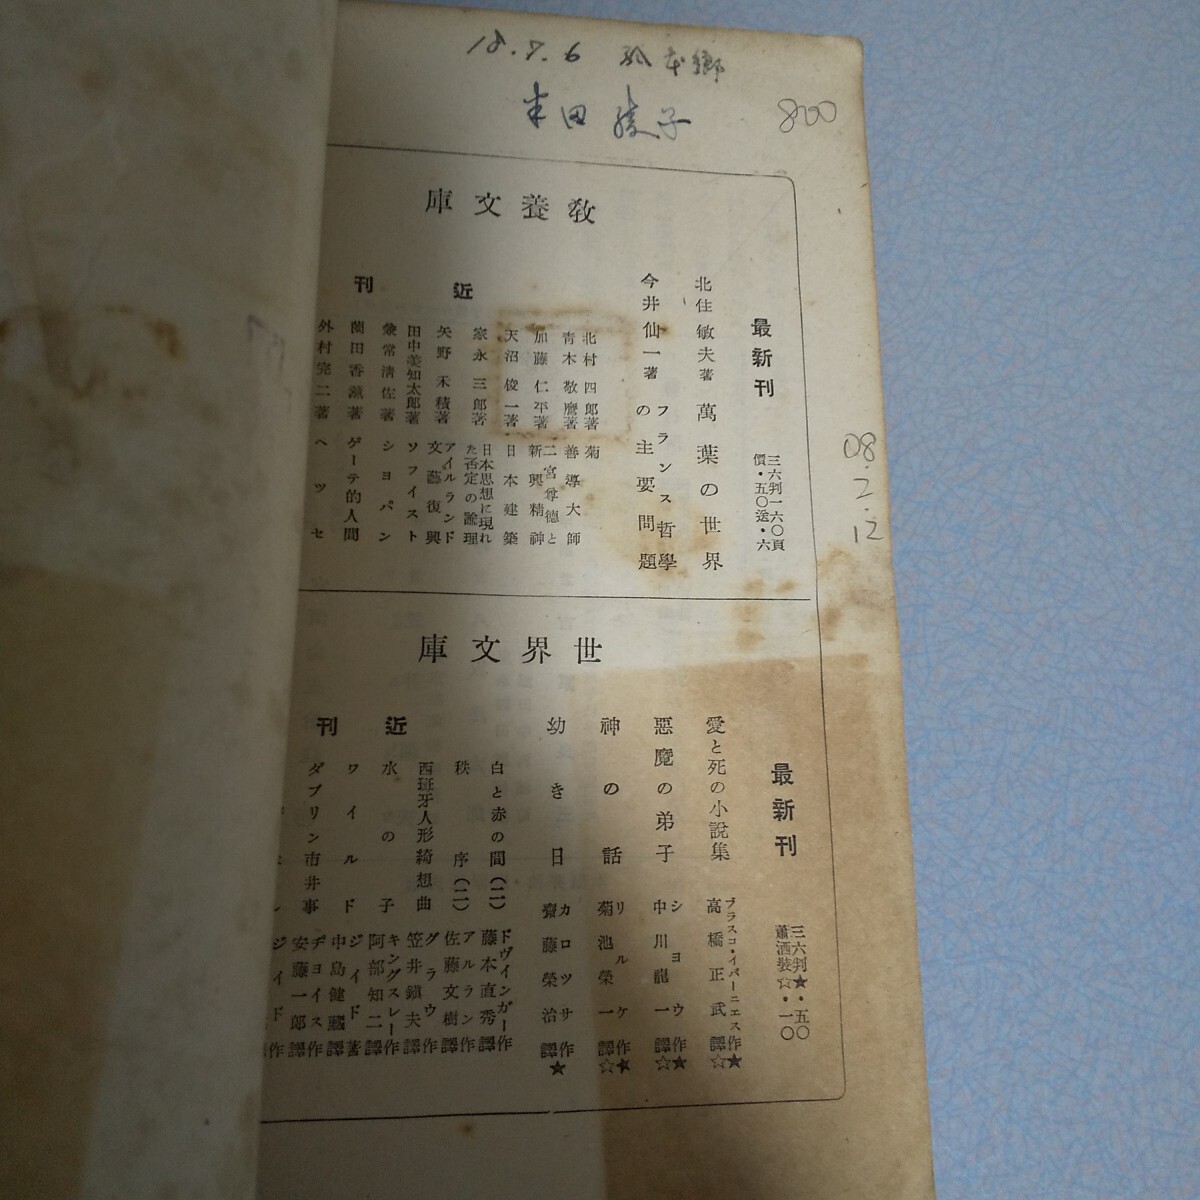 18.7.6 於本郷
半田綾子
800
08.2.12
教養文庫
最新刊
三六判一六〇頁
價・五〇送・六
北住敏夫著 萬葉の世界
今井仙一著 フランス哲學の主要問題
近刊
北村四郎著 菊
青木敬麿著 善導大師
加藤仁平著 二宮尊德と新興精神
天沼俊一著 日本建築
家永三郎著 日本思想に現れた否定の論理
矢野禾積著 アイルランド文藝復興
田中美知太郎著 ソフイスト
兼常清佐著 シヨパン
薗田香勲著 ゲーテ的人間
外村完二著 ヘツセ
世界文庫
最新刊
三六判★・五〇
瀟洒裝☆・一〇
愛と死の小說集 ブラスコ・イバーニエス作 高橋正武譯 ★☆
惡魔の弟子 シヨウ作 中川龍一譯 ★☆
神の話 リルケ作 菊池榮一譯 ★☆
幼き日 カロツサ作 齋藤榮治譯 ★
近刊
白と赤の間(二) ドヴインガー作 藤本直秀譯
秩序(二) アルラン作 佐藤文樹譯
西班牙人形綺想曲 グラウ作 笠井鎭夫譯
水の子 キングスレー作 阿部知二譯
ワイルド ジイド著 中島健藏譯
ダブリン市井事 ヂヨイス作 安藤一郎譯
ジイド作